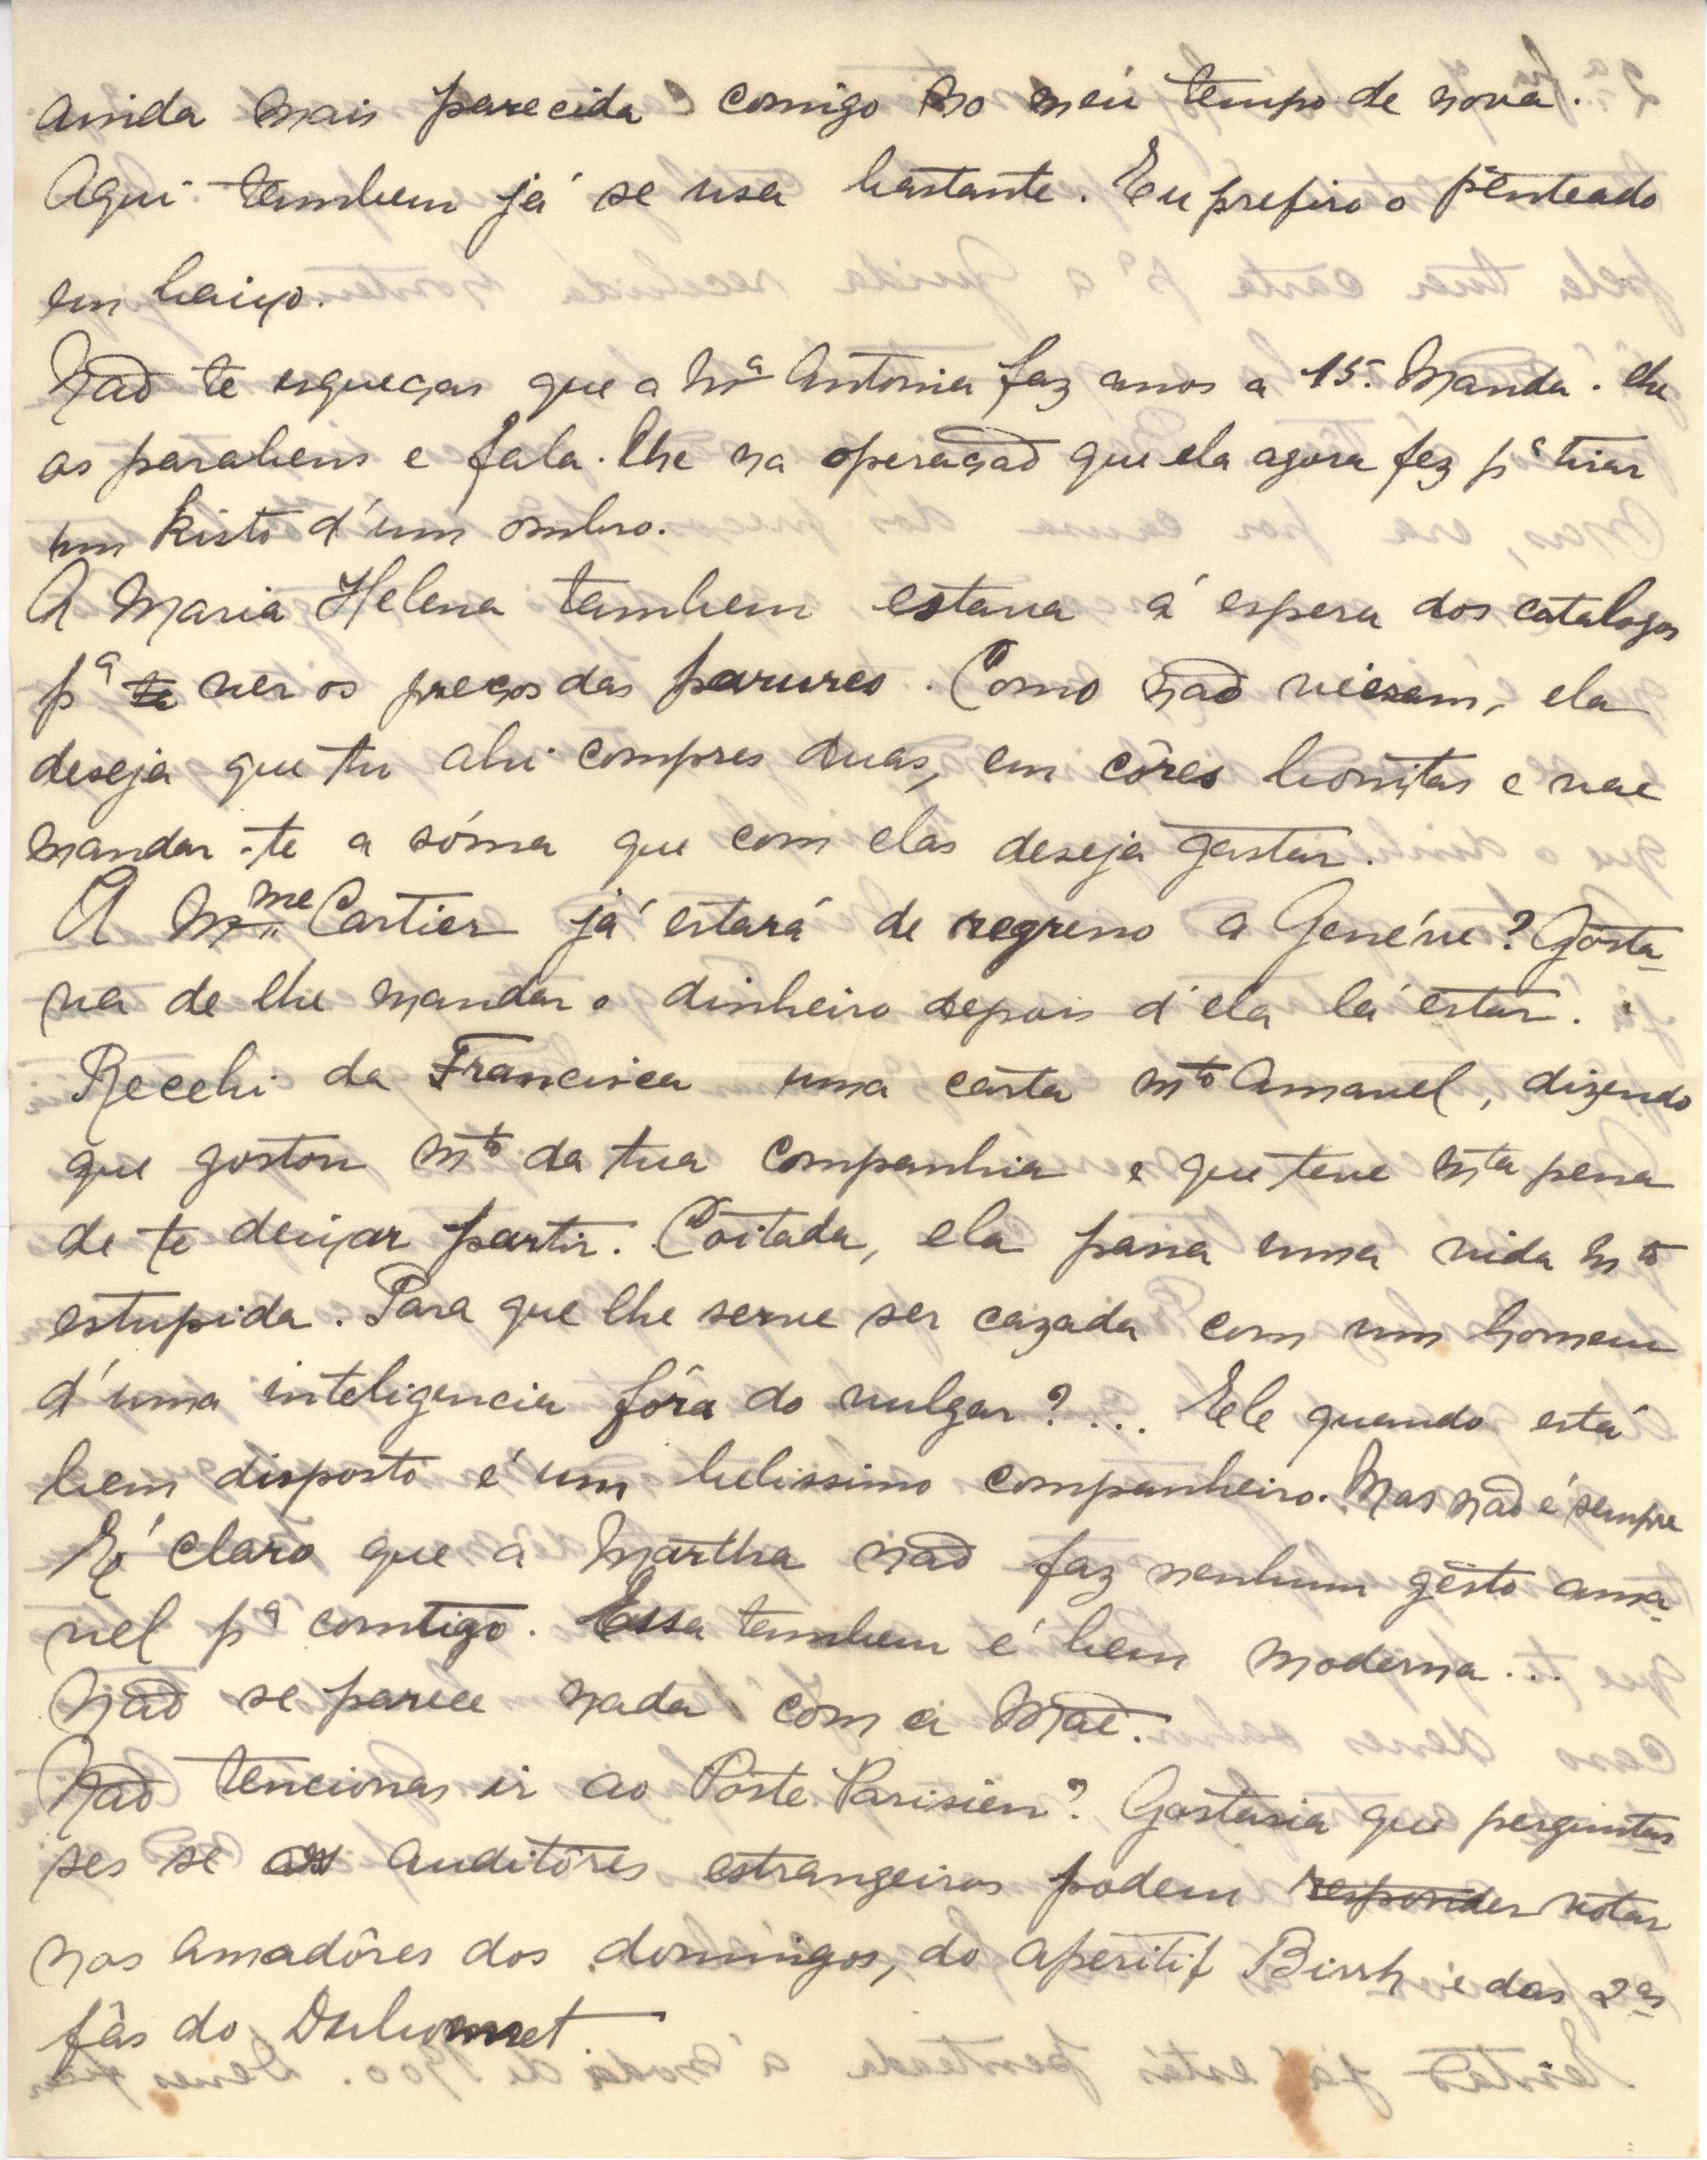 ainda mais parecida comigo no meu tempo de nova.
Aqui tambem já se usa bastante. Eu prefiro o penteado
em baixo.
Não te esqueças que a Mª Antonia faz anos a 15. Manda-lhe
os parabens e fala-lhe na operação que ela agora fez pª tirar
um kisto d'um ombro.
A Maria Helena tambem estava á espera dos catalogos
pª te ver os preços das parures. Como não vieram, ela
deseja que tu ahi compres duas, em côres bonitas e vae
mandar-te a sóma que com elas deseja gastar.
A Mme Cartier já estará de regresso a Genéve? Gosta-
va de lhe mandar o dinheiro depois d'ela lá estar.
Recebi da Francisca uma carta mto amavel, dizendo
que gostou mto da tua companhia e que teve mta pena
de te deixar partir. Coitada, ela passa uma vida mto
estupida. Para que lhe serve ser cazada com um homem
d'uma inteligencia fóra do vulgar?... Ele quando está
bem disposto é um belissimo companheiro. Mas não é sempre
É claro que a Martha não faz nenhum gésto ama-
vel pª comtigo. Essa tambem é bem moderna...
Não se parece nada com a Mãe.
Não tencionas ir ao Poste Parisien? Gostaria que pergumtas-
ses se os auditôres estrangeiros podem responder votar
nos amadôres dos domingos, do aperitif Birrh e das 2as
fas do Dubonnet.